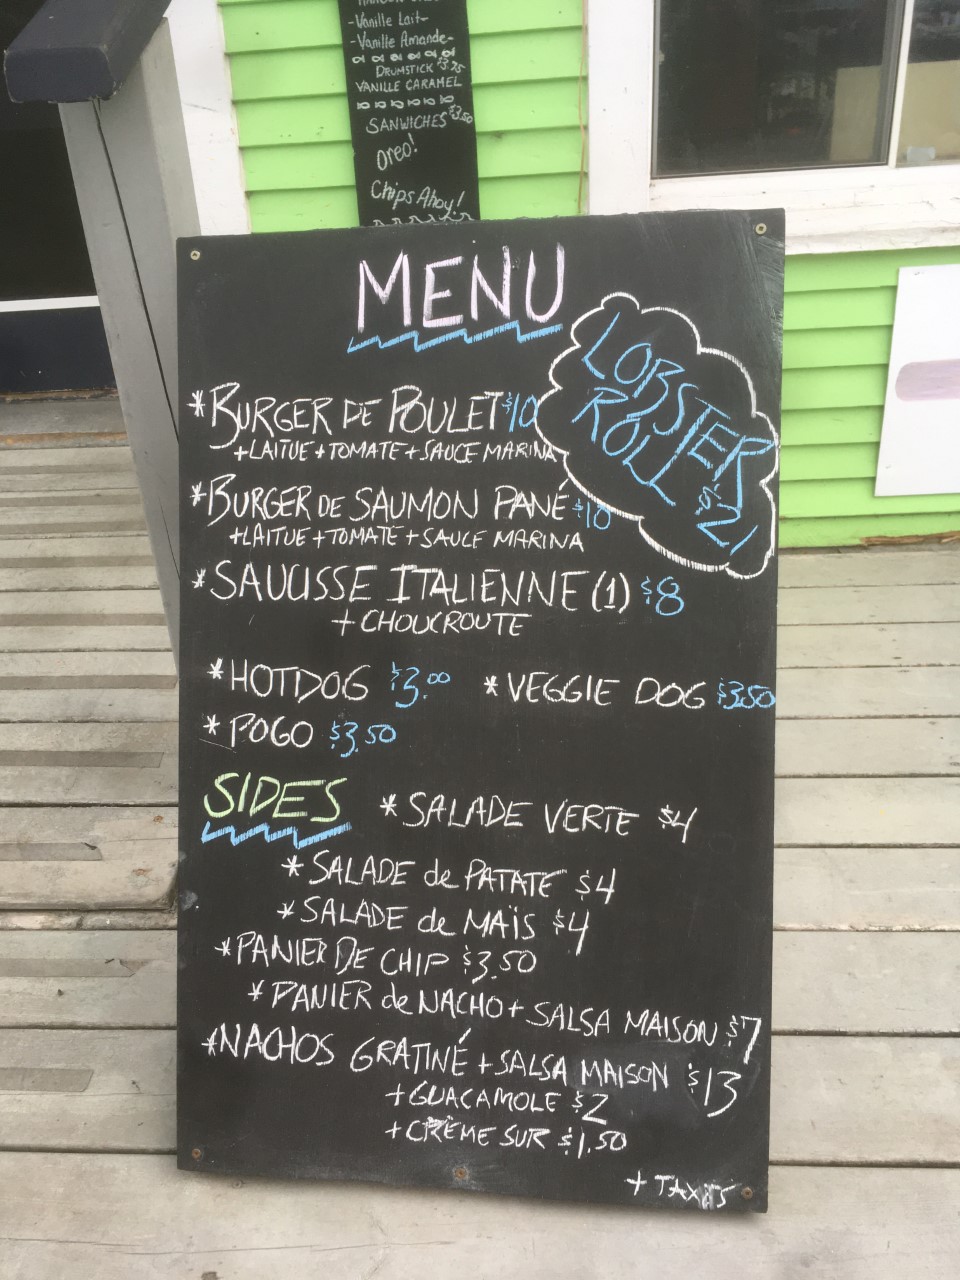 -Vanille Lait-
-Vanille Amande-
DRUMSTICK $3.75
VANILLE CARAMEL
SANWICHES $3.50
Oreo!
Chips Ahoy!
MENU
LOBSTER
ROLL $21
*BURGER DE POULET $10
+LAITUE+TOMATE+SAUCE MARINA
*BURGER DE SAUMON PANÉ $10
+LAITUE+TOMATE+SAUCE MARINA
*SAUCISSE ITALIENNE (1) $8
+CHOUCROUTE
*HOTDOG $3.00 *VEGGIE DOG $3.50
*POGO $3.50
SIDES
*SALADE VERTE $4
*SALADE de PATATE $4
*SALADE de MAÏS $4
*PANIER DE CHIP $3.50
*PANIER de NACHO+SALSA MAISON $7
*NACHOS GRATINÉ+SALSA MAISON $13
+GUACAMOLE $2
+CRÈME SUR $1.50
+ TAXES